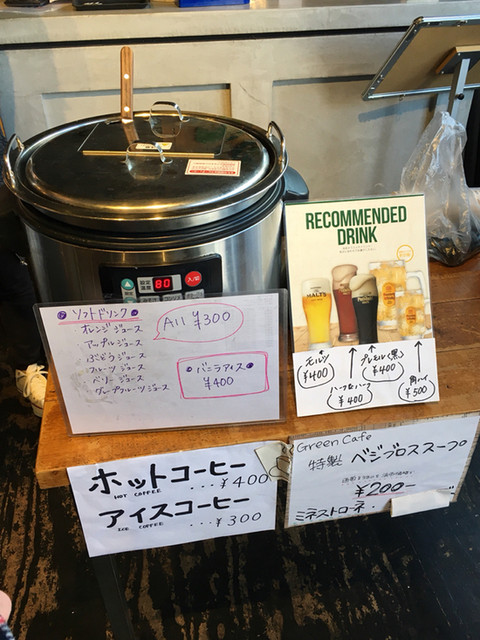 設定温度
80
入/切
RECOMMENDED
DRINK
MALT'S
ソフトドリンク
オレンジジュース
アップルジュース
ぶどうジュース
フルーツジュース
ベリージュース
グレープフルーツジュース
All ¥300
バニラアイス
¥400
モルツ
¥400
ハーフ&ハーフ
¥400
プレモル(黒)
¥400
角ハイ
¥500
ホットコーヒー
HOT COFFEE ...¥400
アイスコーヒー
ICE COFFEE ...¥300
Green Cafe
特製 ベジブロススープ
¥200-
ミネストローネ・